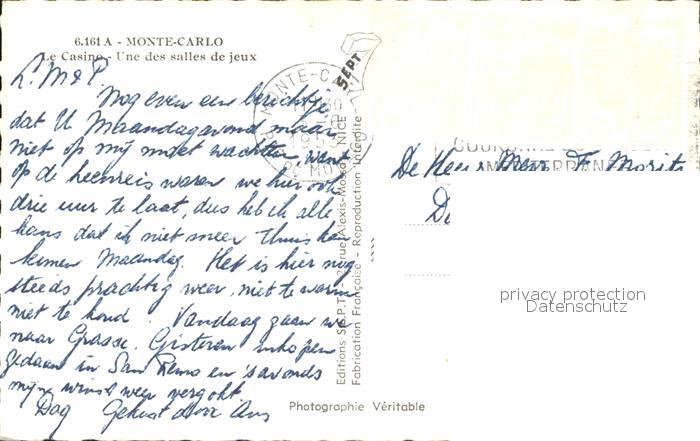 6.161 A - MONTE-CARLO
Le Casino - Une des salles de jeux
L. M & P.
Nog even een berichtje
dat U Maandagavond maar
niet op mij moet wachten, want
op de heenreis waren we hier ook
drie uur te laat, dus heb ik alle
kans dat ik niet meer thuis kan
komen Maandag. Het is hier nog
steeds prachtig weer, niet te warm
niet te koud. Vandaag gaan we
naar Grasse. Gisteren inkopen
gedaan in San Remo en 's avonds
mijn winst weer vergokt
Dag Gekust door Ans
MONTE-C
SEPT
Editions S.E.P.T. Rue Alexis-Mossa NICE
Fabrication Française - Reproduction Interdite
De Heer Mevr F. Morits
privacy protection
Datenschutz
Photographie Véritable